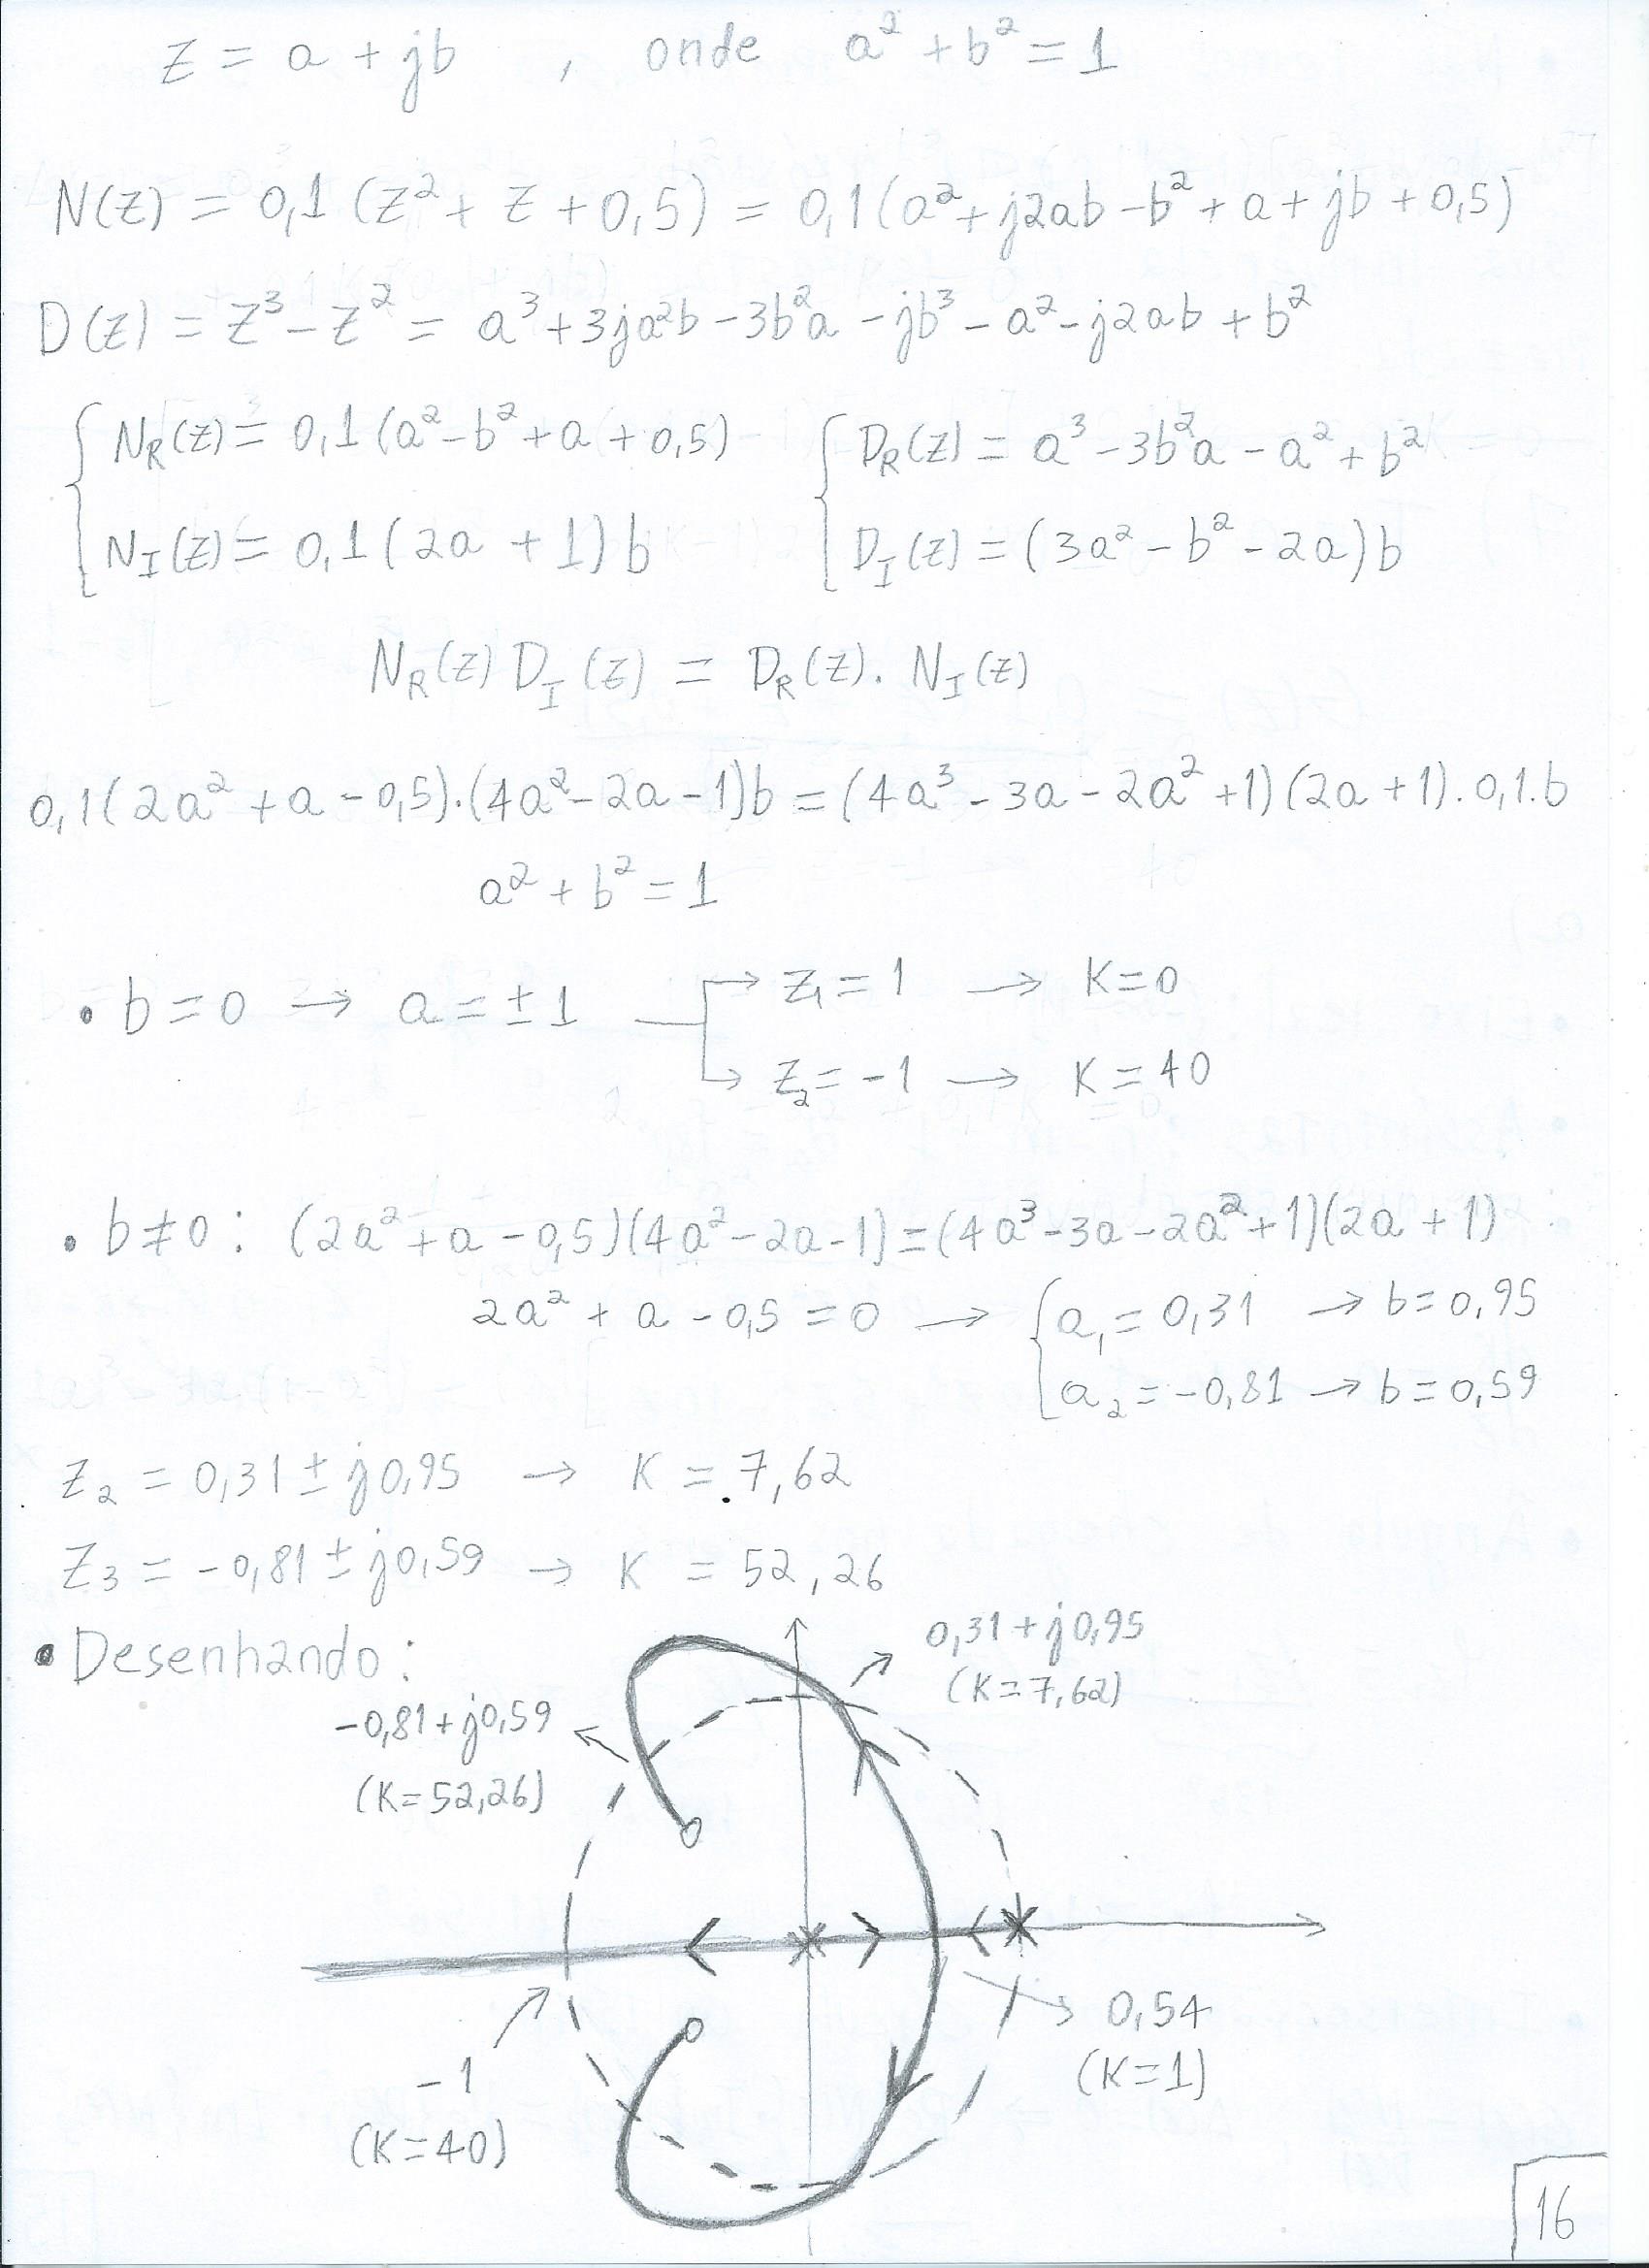 z = a + jb , onde a² + b² = 1
N(z) = 0,1 (z² + z + 0,5) = 0,1(a² + j2ab - b² + a + jb + 0,5)
D(z) = z³ - z² = a³ + 3ja²b - 3b²a - jb³ - a² - j2ab + b²
N_R(z) = 0,1 (a² - b² + a + 0,5) D_R(z) = a³ - 3b²a - a² + b²
N_I(z) = 0,1 (2a + 1) b D_I(z) = (3a² - b² - 2a) b
N_R(z) D_I(z) = D_R(z) . N_I(z)
0,1(2a² + a - 0,5).(4a² - 2a - 1)b = (4a³ - 3a - 2a² + 1)(2a + 1).0,1.b
a² + b² = 1
• b = 0 → a = ±1 → z₁ = 1 → K = 0
→ z₂ = -1 → K = 40
• b ≠ 0 : (2a² + a - 0,5)(4a² - 2a - 1) = (4a³ - 3a - 2a² + 1)(2a + 1)
2a² + a - 0,5 = 0 → { a₁ = 0,31 → b = 0,95
a₂ = -0,81 → b = 0,59
z₂ = 0,31 ± j0,95 → K = 7,62
z₃ = -0,81 ± j0,59 → K = 52,26
• Desenhando :
0,31 + j0,95
(K=7,62)
-0,81 + j0,59
(K=52,26)
0,54
(K=1)
-1
(K=40)
16